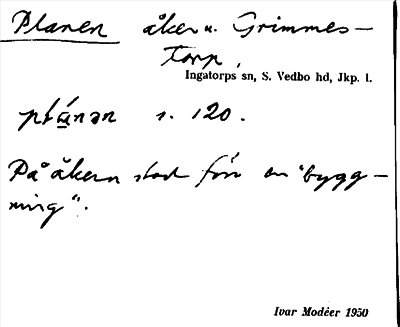 Planen åker u. Grimmes-
torp,
Ingatorps sn, S. Vedbo hd, Jkp. l.
plánən s. 120.
På åkern stod förr en "bygg-
ning".
Ivar Modéer 1950